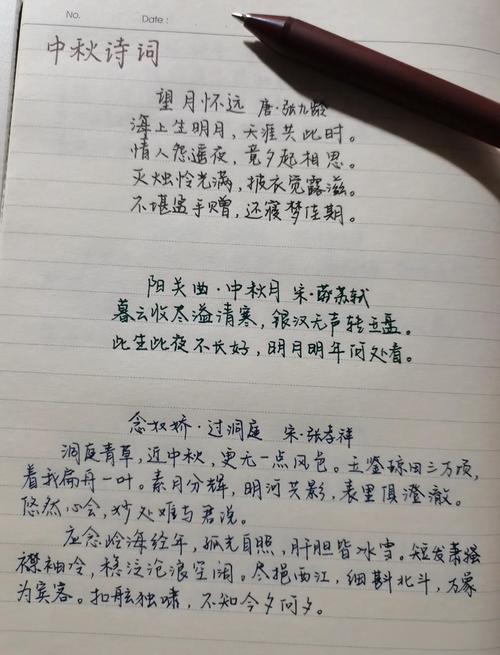 No.
Date:
中秋诗词
望月怀远 唐·张九龄
海上生明月，天涯共此时。
情人怨遥夜，竟夕起相思。
灭烛怜光满，披衣觉露滋。
不堪盈手赠，还寝梦佳期。
阳关曲·中秋月 宋·苏轼
暮云收尽溢清寒，银汉无声转玉盘。
此生此夜不长好，明月明年何处看。
念奴娇·过洞庭 宋·张孝祥
洞庭青草，近中秋，更无一点风色。玉鉴琼田三万顷，
着我扁舟一叶。素月分辉，明河共影，表里俱澄澈。
悠然心会，妙处难与君说。
应念岭海经年，孤光自照，肝胆皆冰雪。短发萧骚
襟袖冷，稳泛沧浪空阔。尽挹西江，细斟北斗，万象
为宾客。扣舷独啸，不知今夕何夕。